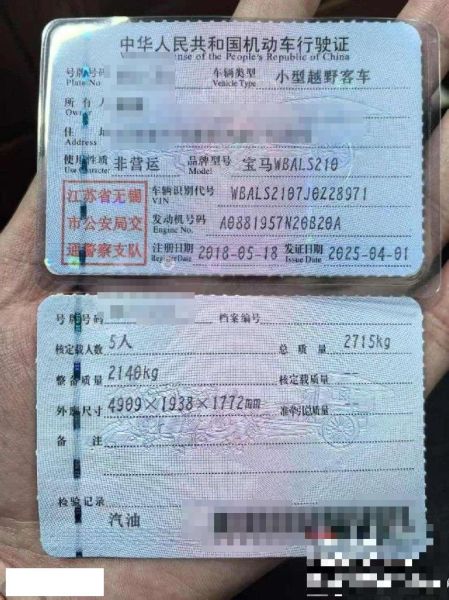 中华人民共和国机动车行驶证
ense of the People's Republic of China
号牌号码 Plate No. 车辆类型 Vehicle Type 小型越野客车
所有人
住址 Address
使用性质 Use Character 非营运 品牌型号 Model 宝马WBALS210
江苏省无锡市公安局交通警察支队
车辆识别代号 VIN WBALS2107J0Z28971
发动机号码 Engine No. A0881957N20B20A
注册日期 Register Date 2018-05-18 发证日期 Issue Date 2025-04-01
号牌号码 档案编号
核定载人数 5人 总质量 2715kg
整备质量 2140kg 核定载质量
外廓尺寸 4909×1938×1772mm 准牵引总质量
备注
检验记录
汽油